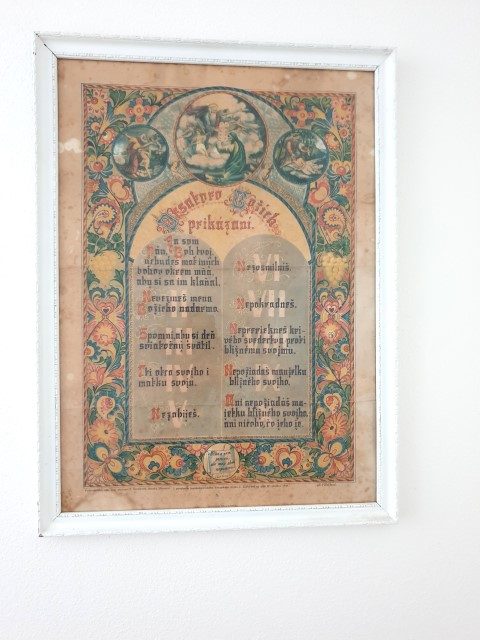 Desatpro Božích
prikázaní.
Ja som
Pán, Boh tvoj,
nebudeš mať iných
bohov okrem mňa,
aby si sa im klaňal.
Nevezmeš mena
Božieho nadarmo.
III
Spomni, aby si deň
sviatočný svätil.
Cti otca svojho i
matku svoju.
V
Nezabiješ.
VI
Nezosmilníš.
VII
Nepokradneš.
Nepreriekneš kri-
vého svedectva proti
bližnému svojmu.
Nepožiadaš manželku
bližného svojho.
Ani nepožiadaš ma-
jetku bližného svojho,
ani ničoho, čo jeho je.